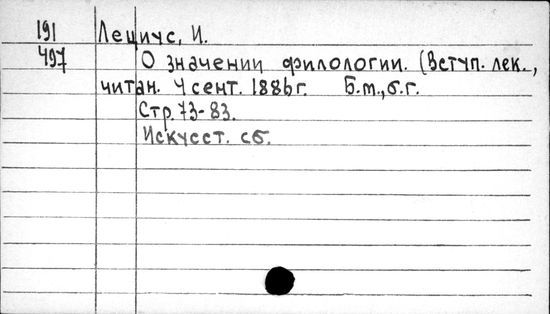 191 Лециус, И.
497 О значении филологии. (Вступ. лек.,
читан. 4 сент. 1886 г. Б.м., б.г.
Стр. 73-83.
Искусст. сб.